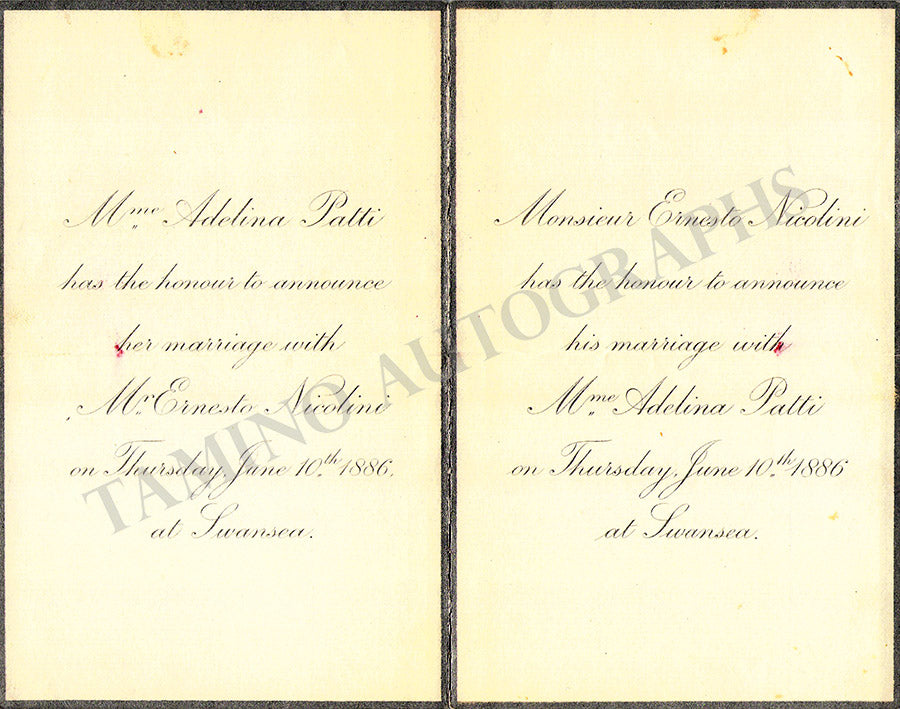 Mme Adelina Patti
has the honour to announce
her marriage with
Mr. Ernesto Nicolini
on Thursday, June 10th 1886,
at Swansea.
Monsieur Ernesto Nicolini
has the honour to announce
his marriage with
Mme Adelina Patti
on Thursday, June 10th 1886
at Swansea.
TAMINO AUTOGRAPHS